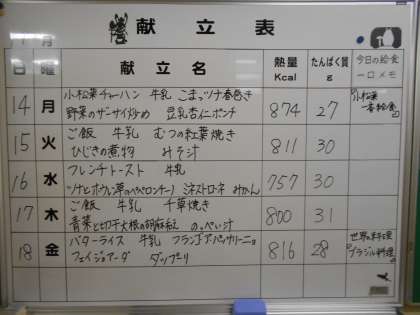 献立表
月
日 曜 献立名 熱量 Kcal たんぱく質 g 今日の給食 一口メモ
14 月 小松菜チャーハン 牛乳 こまッツナ春巻き 874 27 小松菜
野菜のザーサイ炒め 豆乳杏仁ポンチ 一斉給食
15 火 ご飯 牛乳 むつの紅葉焼き 811 30
ひじきの煮物 みそ汁
16 水 フレンチトースト 牛乳 757 30
ツナとホウレン草のペペロンチーノ ミネストローネ みかん
17 木 ご飯 牛乳 千草焼き 800 31
青菜と切干大根の胡麻和え のっぺい汁
18 金 バターライス 牛乳 フランゴ・ア・パッサリーニョ 816 28 世界の料理
フェイジョアーダ ブラジル料理